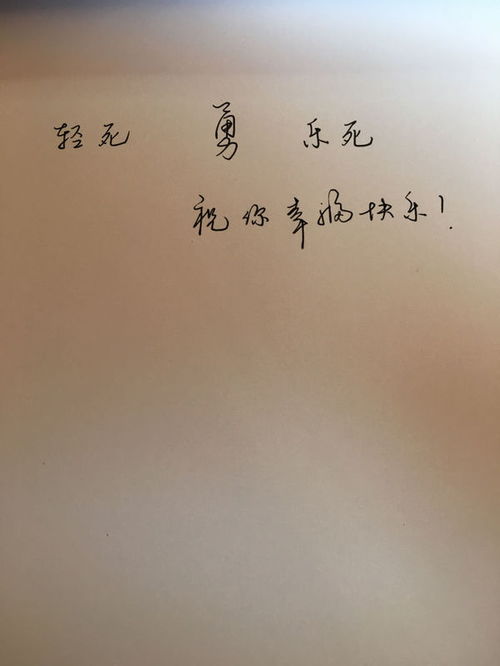 轻死 勇 乐死
祝你幸福快乐!